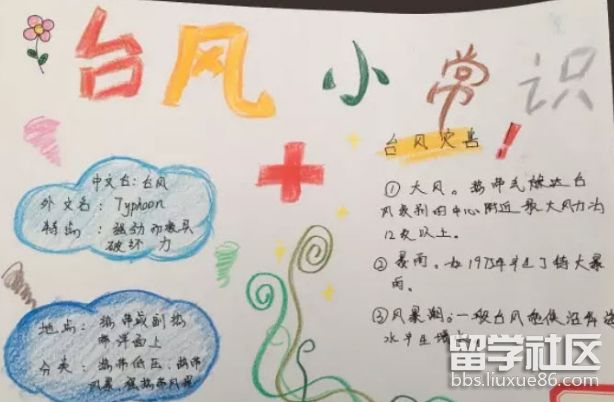 台风小常识
台风灾害！
中文名：台风
外文名：Typhoon
特征：强劲而极具
破坏力
① 大风。热带气旋达台
风级别的中心附近最大风力为
12级以上。
② 暴雨。如1975年 了特大暴
雨。
③ 风暴潮：一般台风 使沿岸
水
地点：热带或副热
带洋面上
分类：热带低压、热带
风暴 强热带风暴
留学社区
bbs.liuxue86.com